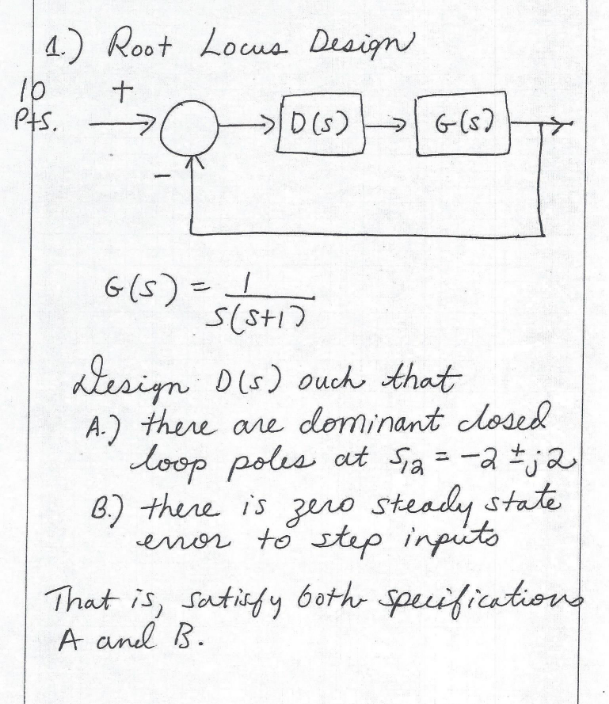 1.) Root Locus Design
10
Pts.
+
D(s)
G(s)
-
G(s) = 1
s(s+1)
Design D(s) such that
A.) there are dominant closed
loop poles at S12 = -2 ± j2
B.) there is zero steady state
error to step inputs
That is, satisfy both specifications
A and B.